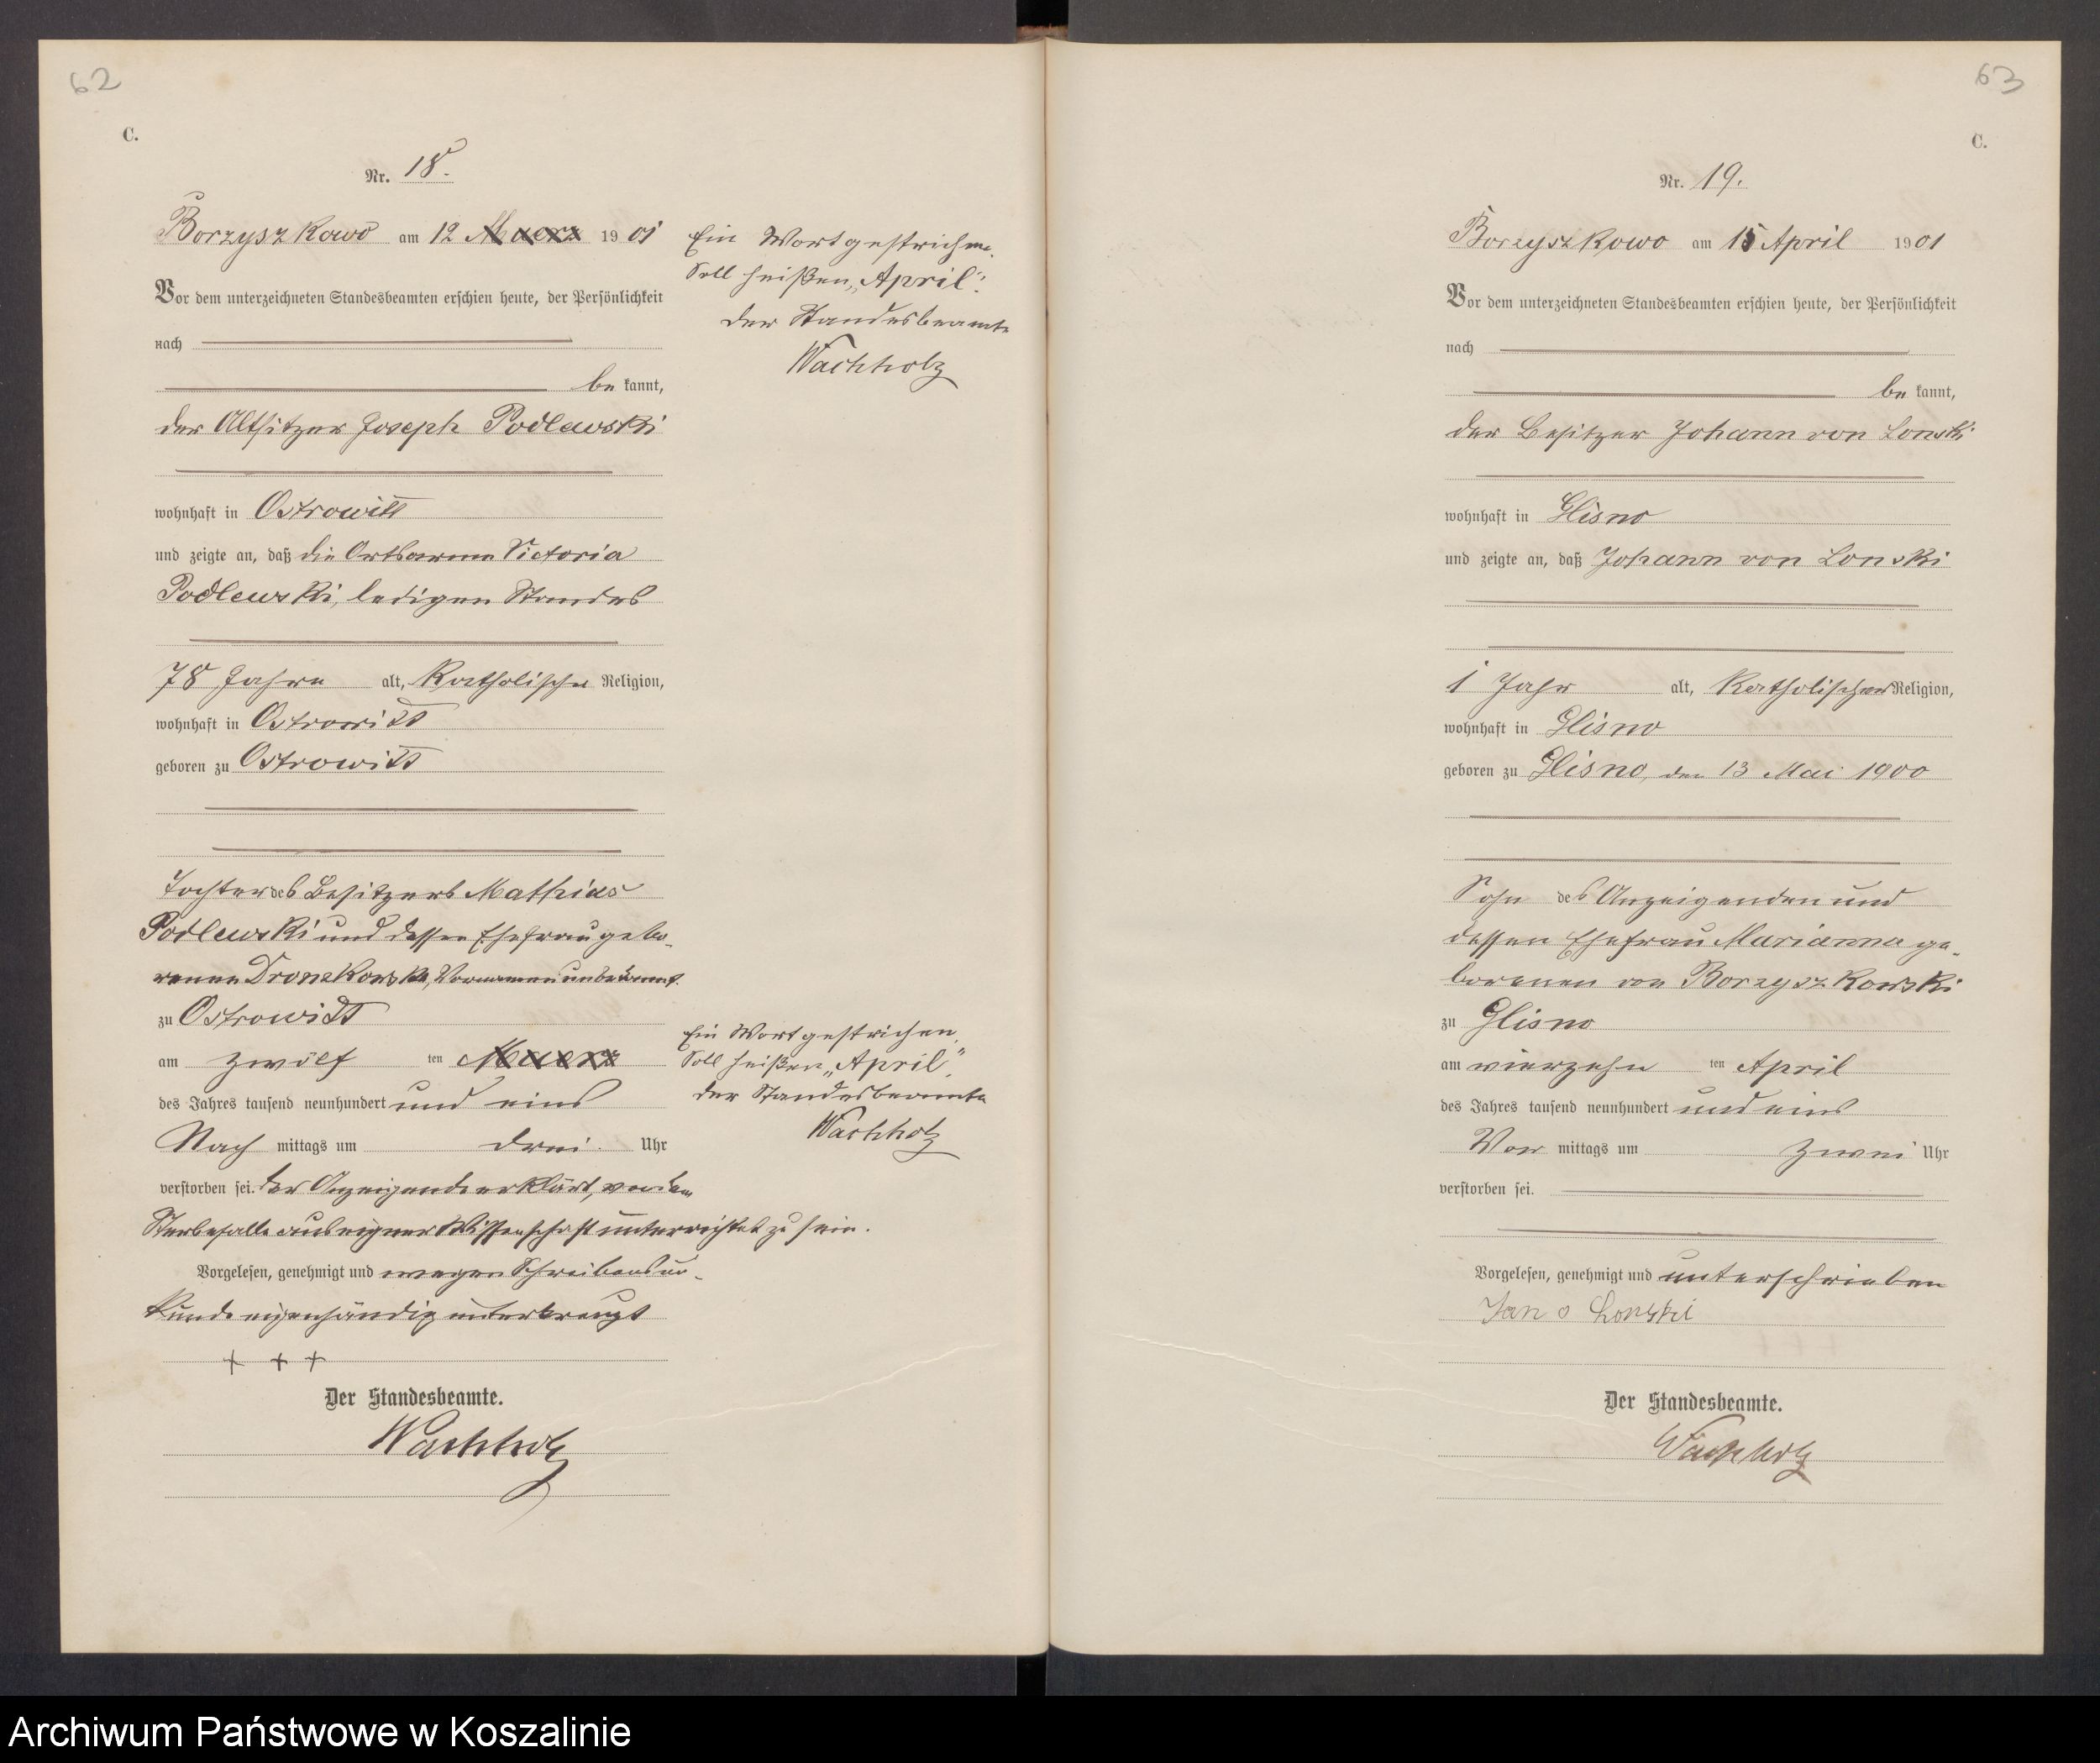 62
C.
Nr. 18.
Borzyszkowo am 12 Maerz 1901
Vor dem unterzeichneten Standesbeamten erschien heute, der Persönlichkeit
nach
be kannt,
der Altsitzer Joseph Podlewski
wohnhaft in Ostrowitt
und zeigte an, daß die Ortsarme Victoria
Podlewski, ledigen Standes
78 Jahre alt, katholischer Religion,
wohnhaft in Ostrowitt
geboren zu Ostrowitt
Tochter des Besitzers Mathias
Podlewski und dessen Ehefrau gebo-
renen Vornamen unbekannt
zu Ostrowitt
am zwölf ten Maerz
des Jahres tausend neunhundert und eins
Nach mittags um drei Uhr
verstorben sei. Der Anzeigende erklärt, von dem
Sterbefalle aus eigner Wissenschaft unterrichtet zu sein.
Vorgelesen, genehmigt und wegen Schreibensun-
kunde eigenhändig unterkreuzt
+ + +
Der Standesbeamte.
Wachholz
Ein Wort gestrichen.
Soll heißen „April".
Der Standesbeamte
Wachholz
Ein Wort gestrichen.
Soll heißen „April".
Der Standesbeamte
Wachholz
63
C.
Nr. 19.
Borzyszkowo am 15 April 1901
Vor dem unterzeichneten Standesbeamten erschien heute, der Persönlichkeit
nach
be kannt,
der Besitzer Johann von Lonski
wohnhaft in Glisno
und zeigte an, daß Johann von Lonski
1 Jahr alt, katholischer Religion,
wohnhaft in Glisno
geboren zu Glisno, den 13 Mai 1900
Sohn des Anzeigenden und
dessen Ehefrau Marianna ge-
borenen von Borzyszkowski
zu Glisno
am vierzehn ten April
des Jahres tausend neunhundert und eins
Vor mittags um zwei Uhr
verstorben sei.
Vorgelesen, genehmigt und unterschrieben
Jan Lonski
Der Standesbeamte.
Wachholz
Archiwum Państwowe w Koszalinie